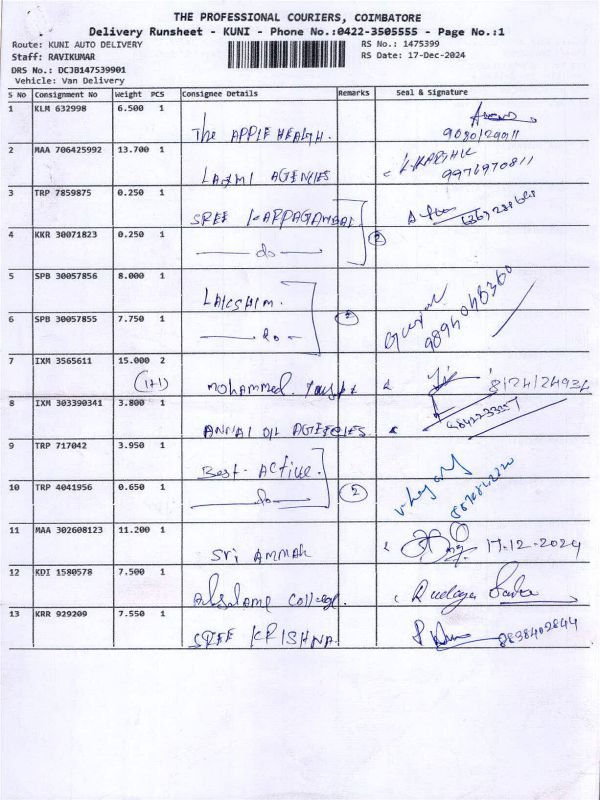 THE PROFESSIONAL COURIERS, COIMBATORE
Delivery Runsheet - KUNI - Phone No.:0422-3505555 - Page No.:1
Route: KUNI AUTO DELIVERY
RS No.: 1475399
Staff: RAVIKUMAR
RS Date: 17-Dec-2024
DRS No.: DCJB147539901
Vehicle: Van Delivery
S No Consignment No Weight PCS Consignee Details Remarks Seal & Signature
1 KLM 632998 6.500 1 The APPLE HEALTH.
2 MAA 706425992 13.700 1 LAXMI AGENCIES 9976970811
3 TRP 7859875 0.250 1 SREE KARPAGAMBAL
4 KKR 30071823 0.250 1 do 2
5 SPB 30057856 8.000 1
6 SPB 30057855 7.750 1 do 2 9894048360
7 IXM 3565611 15.000 2
(1+1) mohammed
8 IXM 303390341 3.800 1 ANNAI OIL AGENCIES
9 TRP 717042 3.950 1 Best - Active.
10 TRP 4041956 0.650 1 do 2
11 MAA 302608123 11.200 1 Sri AMMAN 17.12.2024
12 KDI 1580578 7.500 1 College.
13 KRR 929209 7.550 1 SREE KRISHNA 9838402844